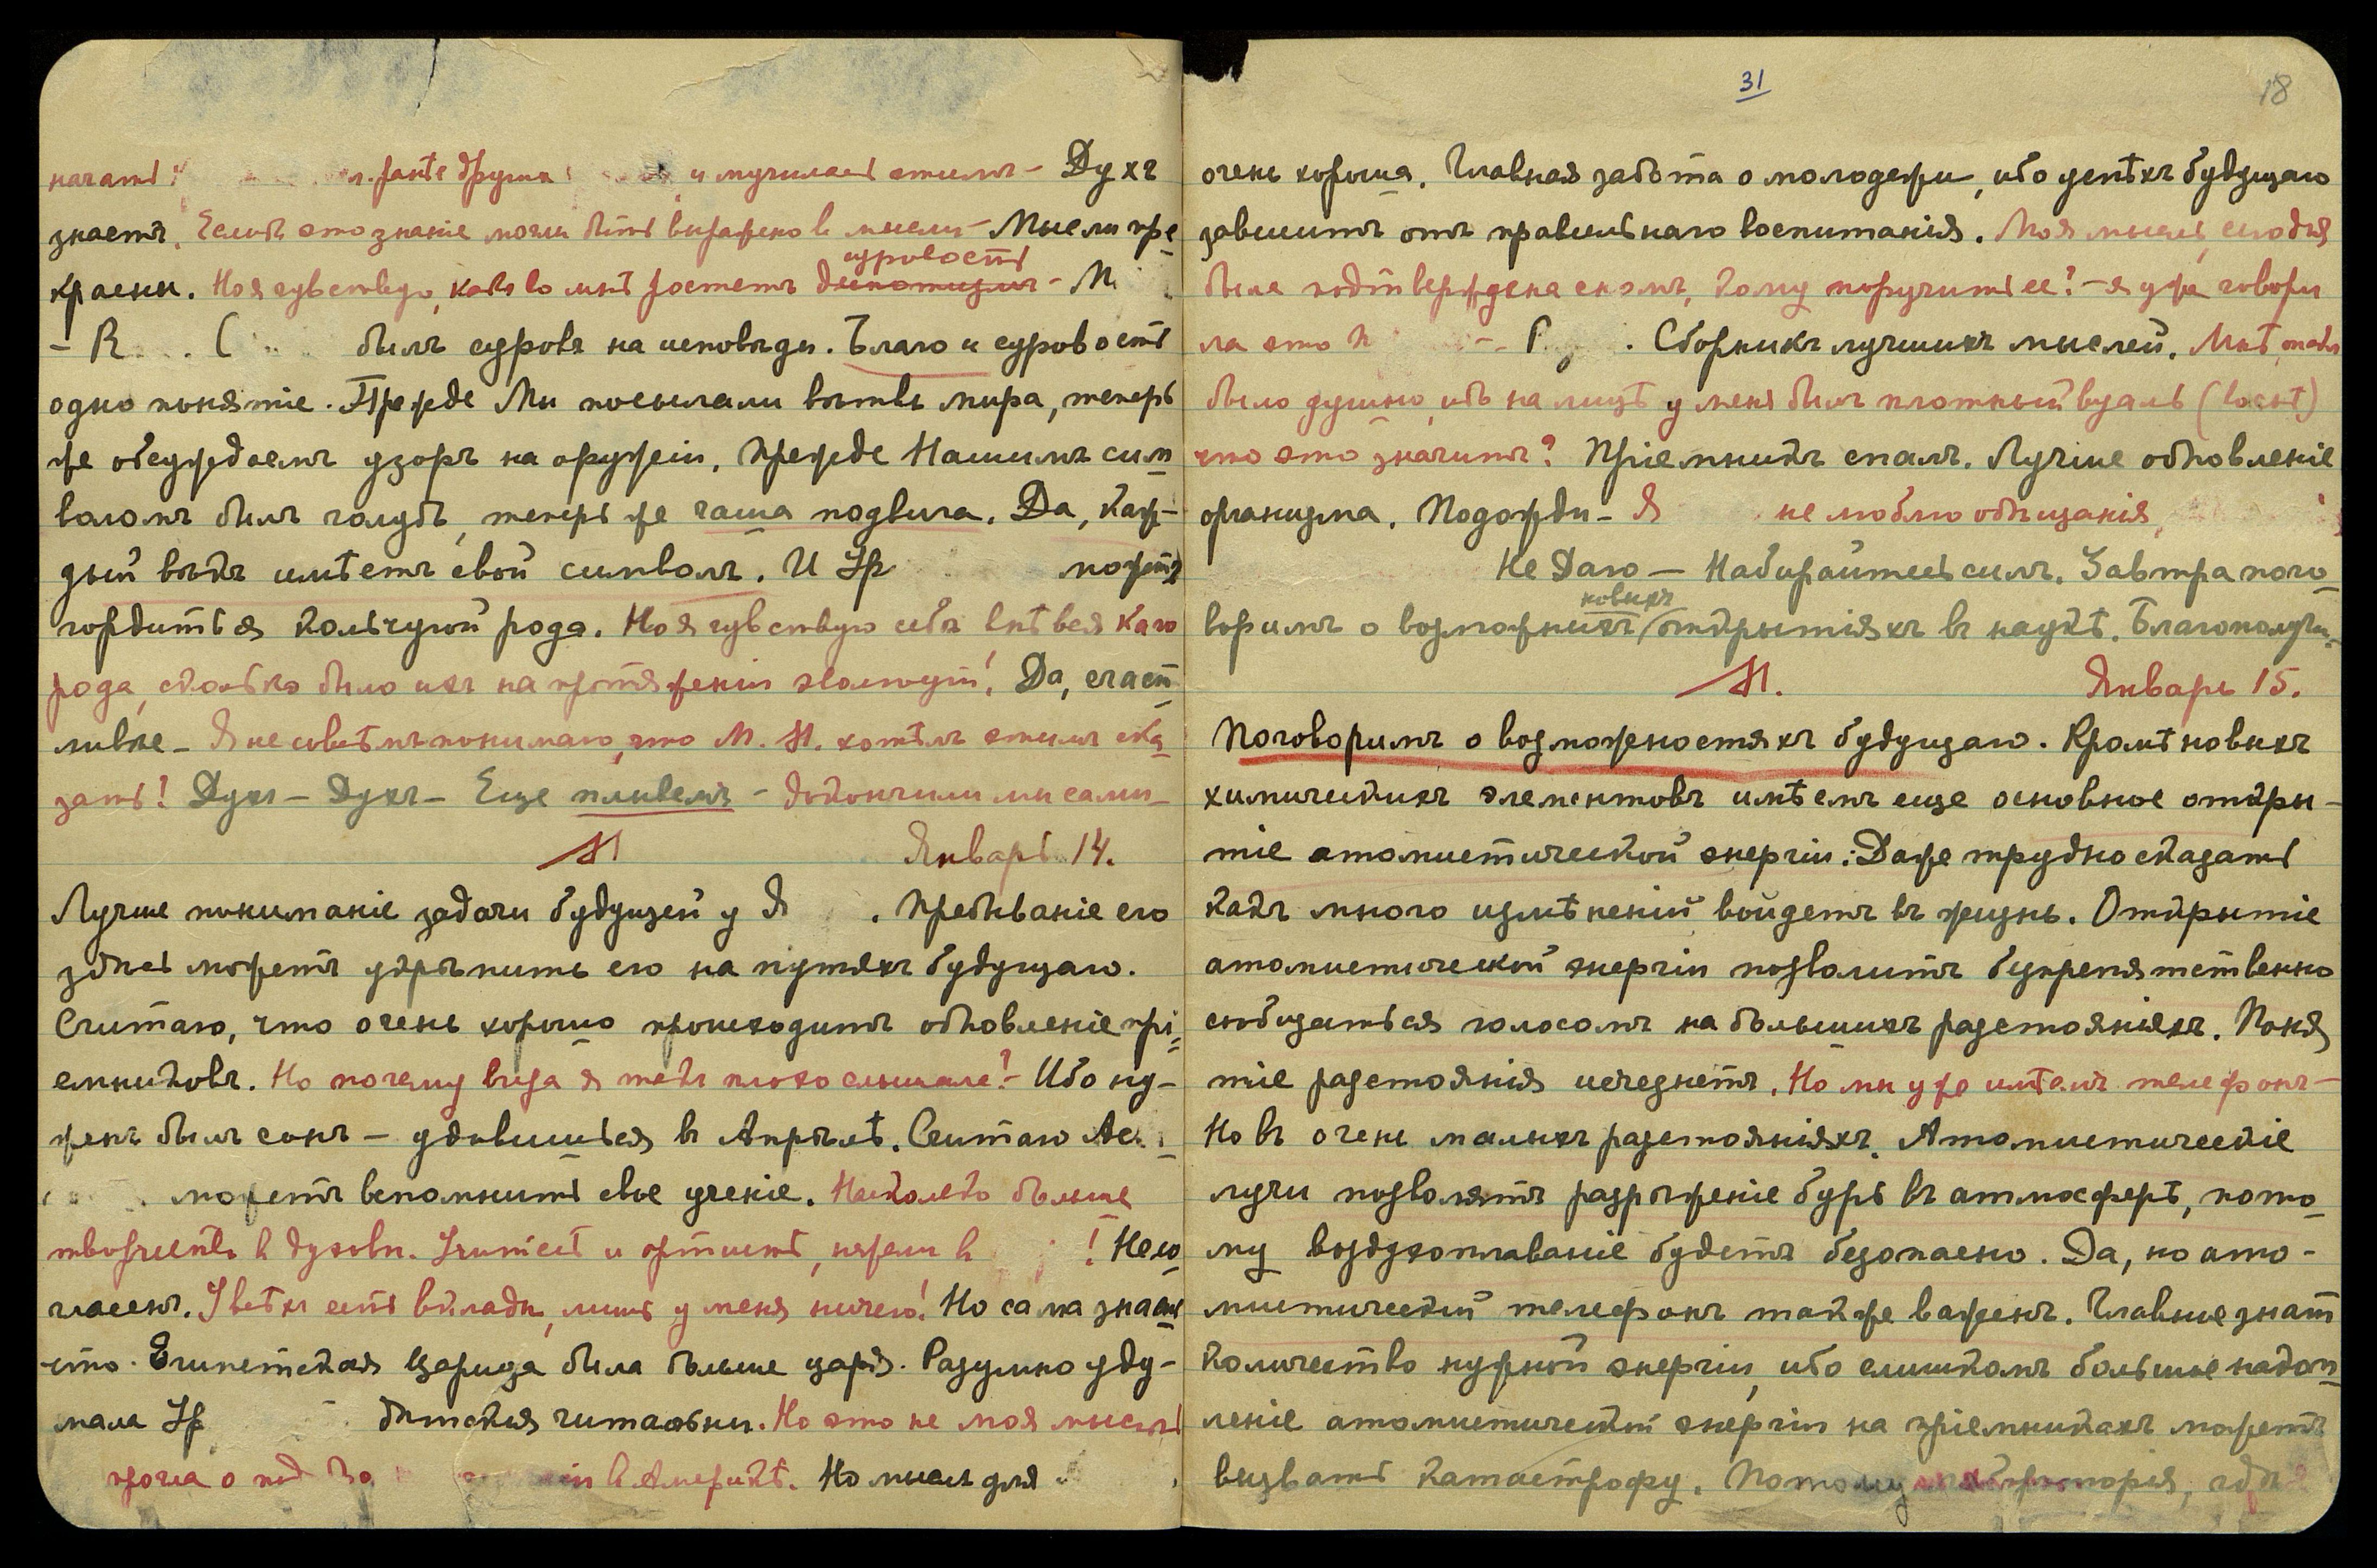 знаетъ. Мысли пре
красны. Но я чувствую, какъ во мнѣ ростетъ суровость деспотизмъ – М
былъ суровъ на исповѣди. Благо и суровость
одно понятіе. Прежде Мы посылали вѣтвь мира, теперь
же обсуждаемъ узоръ на оружіи. Прежде Нашимъ сим
воломъ былъ голубь, теперь же чаша подвига. Да, каж–
дый вѣкъ имѣетъ свой символъ. И Ур
гордиться кольчугой рода. Но я чувствую себя внѣ всякаго
рода, сколько было ихъ на протяженіи эволюціи! Да, счаст
ливѣе – Я не совсѣмъ понимаю, что М. М. хотѣлъ этимъ ска
зать! Духъ – Духъ – Еще пливемъ – докончили мы сами –
Январь 14.
Лучше пониманіе задачи будущей у Я . Пребываніе его
здѣсь можетъ укрѣпить его на путяхъ будущаго.
Считаю, что очень хорошо происходитъ обновленіе прі
емниковъ. Но почему вчера я такъ плохо слышала? – Ибо ну–
женъ былъ сонъ – удавшійся въ Апрѣлѣ. Считаю
можетъ вспомнить свое ученіе. Насколько больше
творчества въ духовн. и артистъ, нежели в ! Не со
гласенъ. У всѣхъ есть вклады, лишь у меня ничего! Но сама знаеш
что. Египетская Царица была больше царя. Разумно уду–
мала Ур дѣтскія читальни. Но это не моя мысль
прочла о въ Америкѣ. Но мысль для
31
18
очень хороша. Главная забота о молодежи, ибо успѣхъ будущаго
зависитъ отъ правильнаго воспитанія. Моя мысль сегодня
была подтверждена сномъ, кому поручить ее? – я уже говори
ла это . Сборникъ лучшихъ мыслей. Мнѣ
было душно, ибо на лицѣ у меня былъ плотный вуаль (во снѣ)
что это значитъ? Пріемникъ спалъ. Лучше обновленіе
организма. Подожди – Я не люблю обѣщанія,
Не Даю – Набирайтесь силъ. Завтра пого
воримъ о возможныхъ новыхъ открытіяхъ въ наукѣ. Благополучн.
М. Январь 15.
Поговоримъ о возможностяхъ будущаго. Кромѣ новыхъ
химическихъ элементовъ имѣемъ еще основное откры–
тіе атомистической энергіи: Даже трудно сказать
какъ много измѣненій войдетъ въ жизнь. Открытіе
атомистической энергіи позволитъ безпрепятственно
сообщаться голосомъ на большихъ разстояніяхъ. Поня
тіе разстоянія исчезнетъ. Но мы уже имѣемъ телефонъ –
Но въ очень малыхъ разстояніяхъ. Атомистическіе
лучи позволятъ разрѣженіе бурь въ атмосферѣ, пото
му воздухоплаваніе будетъ безопасно. Да, но ато–
мистическій телефонъ также важенъ. Главное знать
количество нужной энергіи, ибо слишкомъ большое накоп
леніе атомистической энергіи на пріемникахъ можетъ
вызвать катастрофу. Потому